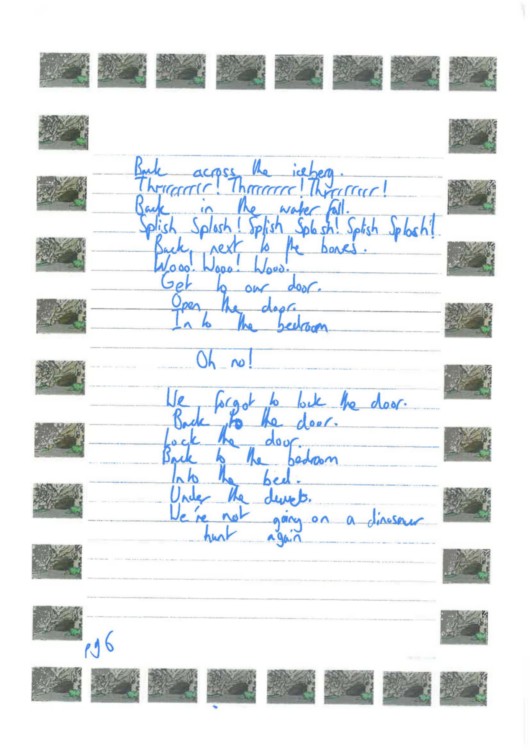 Back across the iceberg.
Thrrrrrrrr! Thrrrrrrr! Thrrrrrrrr!
Back in the water fall.
Splish Splash! Splish Splash! Splish Splash!
Back next to the bones.
Wooo! Wooo! Wooo.
Get to our door.
Open the door.
In to the bedroom
Oh no!
We forgot to lock the door.
Back to the door.
Lock the door.
Back to the bedroom
Into the bed.
Under the duvets.
We're not going on a dinosaur
hunt again
pg 6